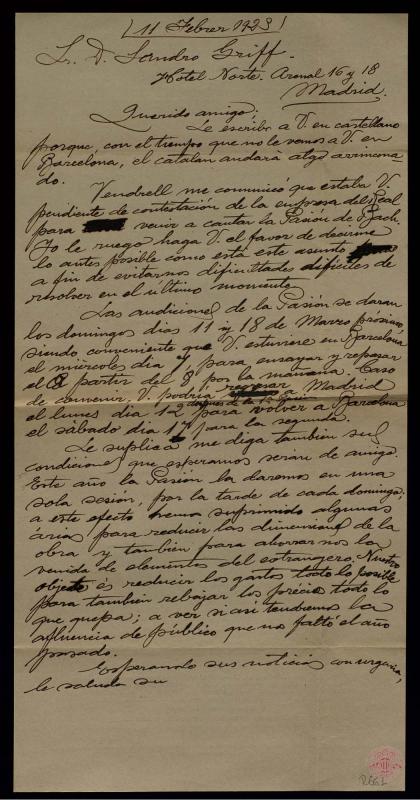 (11 Febrer 1923)
Sr. D. Sandro Griff.
Hotel Norte. Arenal 16 y 18
Madrid.
Querido amigo:
Le escribo a V. en castellano
porque, con el tiempo que no le vemos a V. en
Barcelona, el catalán andará algo arrincona-
do.
Vendrell me comunicó que estaba V.
pendiente de contestación de la empresa del Real
para venir a cantar la Pasión de Bach.
Yo le ruego haga V. el favor de decirme
lo antes posible como está este asunto
a fin de evitarnos dificultades difíciles de
resolver en el último momento.
Las audiciones de la Pasión se daran
los domingos dias 11 y 18 de Marzo próximo,
siendo conveniente que V. estuviere en Barcelona
el miercoles dia 7 para ensayar y repasar
el 8 partir del 8 por la mañana. Caso
de convenir, V. podria regresar a Madrid
despues de la 1ª
el lunes dia 12 para volver a Barcelona
el sábado dia 17 para la segunda.
Le suplico me diga tambien sus
condiciones que esperamos serán de amigo.
Este año la Pasión la daremos en una
sola sesión, por la tarde de cada domingo;
a este efecto hemos suprimido algunas
árias para reducir las dimensiones de la
obra y tambien para ahorrarnos la
venida de elementos del estrangero. Nuestro
objeto es reducir los gastos todo lo posible
para tambien rebajar los precios todo lo
que quepa; a ver si asi tendremos la
afluencia de público que nos faltó el año
pasado.
Esperando sus noticias con urgencia,
le saluda su